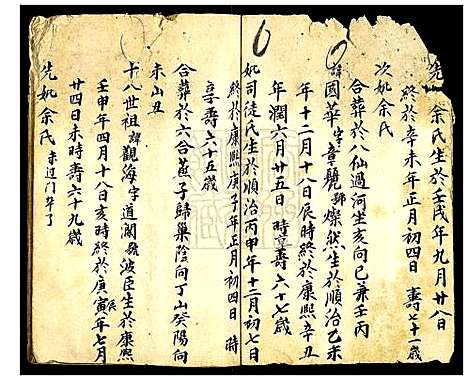 先妣余氏生於壬戌年九月廿八
終於辛未年正月初四日 壽七十一歲
次妣余氏
合葬於八仙過河坐亥向巳兼壬丙
諱國華字章麗號燦然生於順治己未
年十二月十八日辰時終於康熙辛丑
年潤六月廿五日時壽六十七歲
妣司徒氏生於順治丙申年十二月初七日
終於康熙庚子年正月初四日 時
享壽六十五歲
合葬於六合燕子歸巢陰向丁山癸陽向
未山丑
十八世祖諱觀海字道闊號波臣生於康熙
壬申年四月十八日亥時終於庚寅年七月
廿四日未時壽六十九歲
先妣余氏 未过门卒了